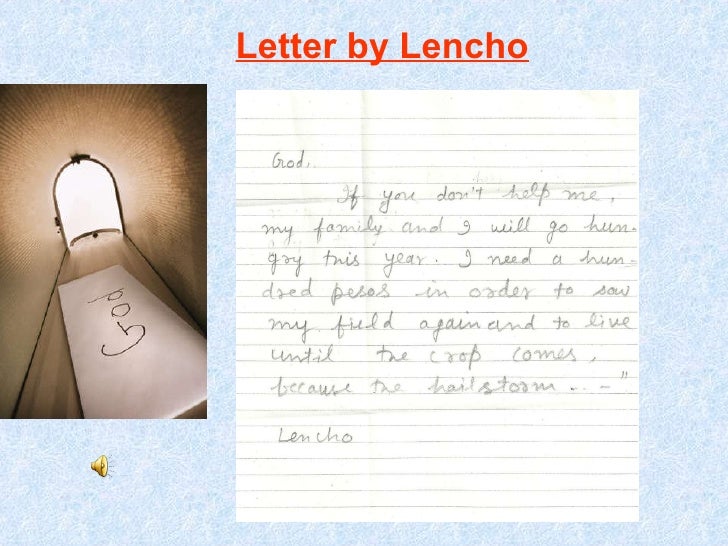 Letter by Lencho
God
God,
If you don't help me,
my family and I will go hun-
gry this year. I need a hun-
dred pesos in order to sow
my field again and to live
until the crop comes,
because the hailstorm...-"
Lencho